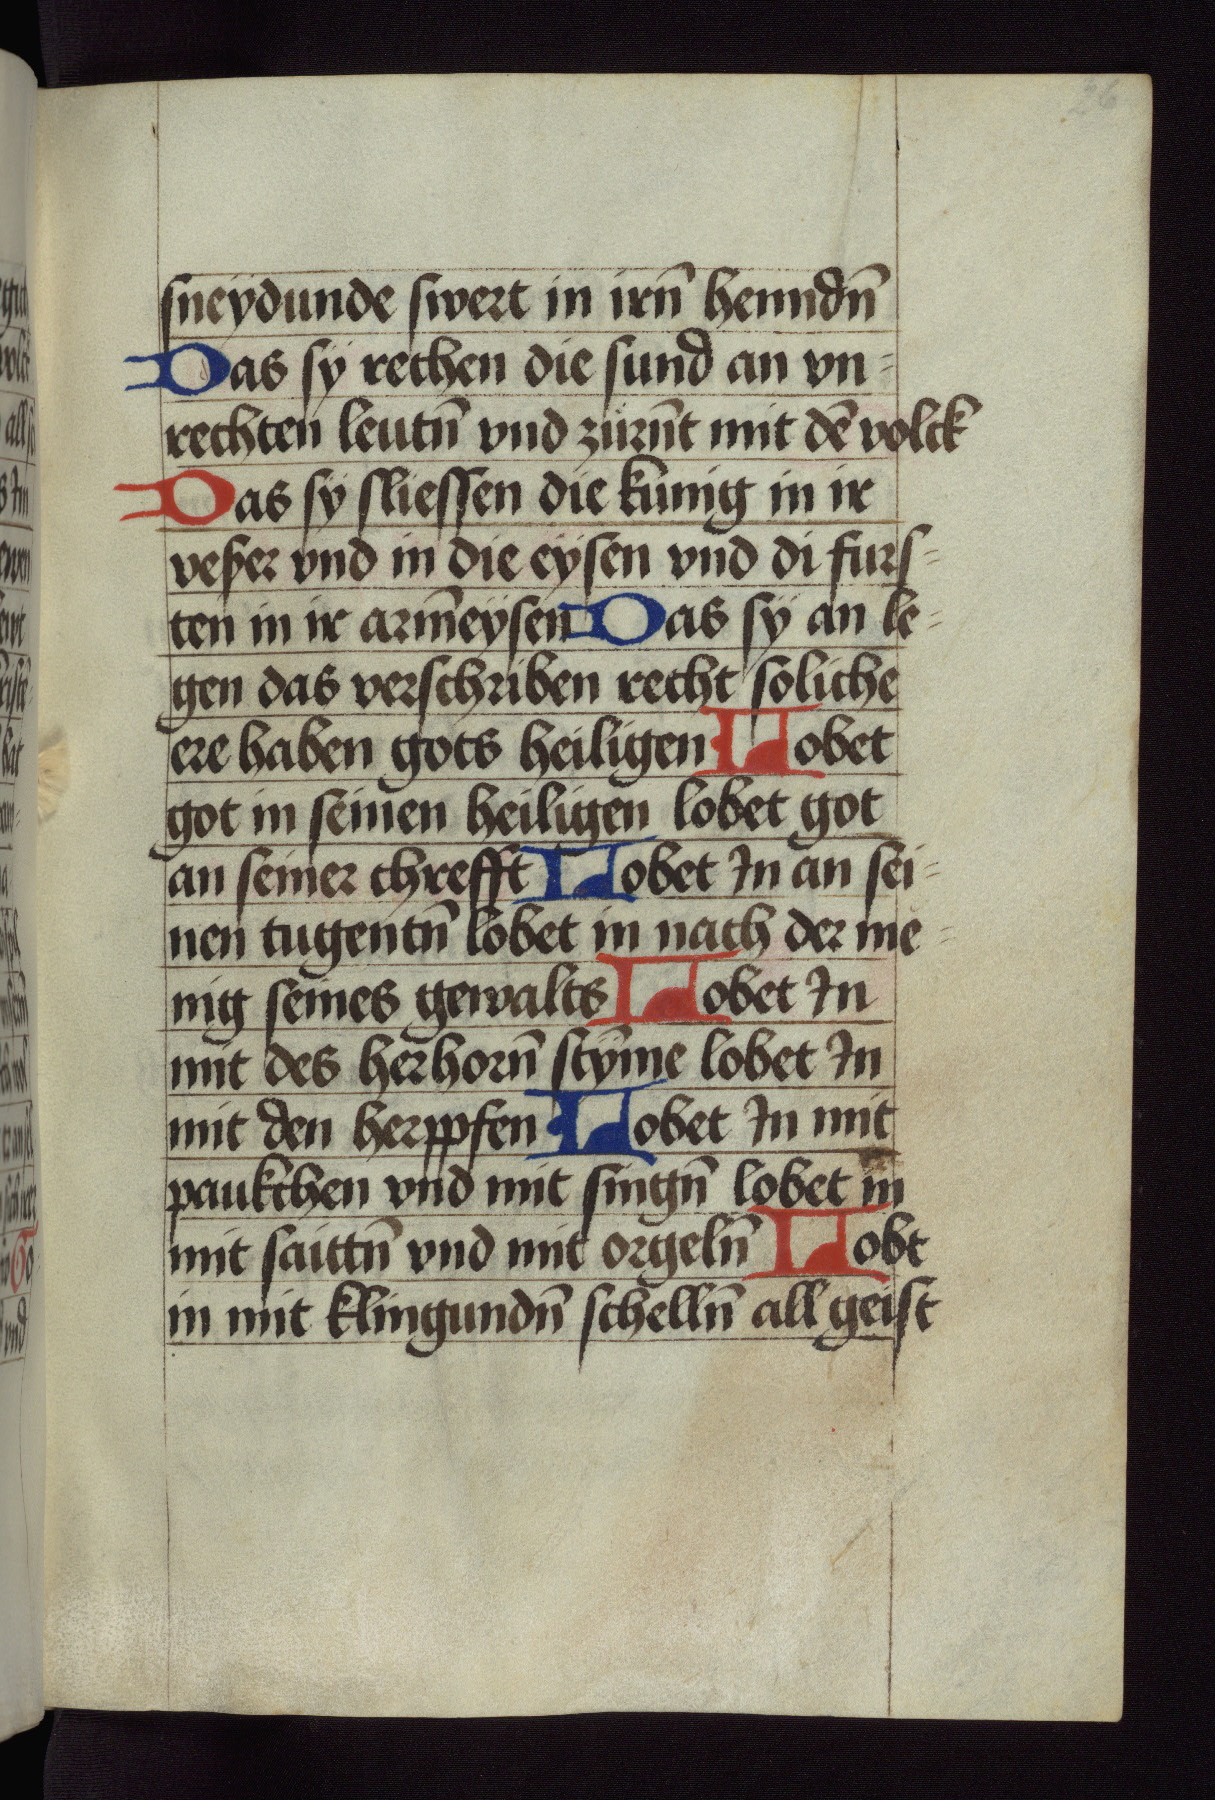 26
sneydunde swert in irn̄ henndn̄
Das sÿ rechen die sund an vn-
rechten leutn̄ vnd zürn̄t mit dē volck
Das sÿ sliessen die kunig in ir
veßer vnd in die eÿsen vnd di furs-
ten in ir arm̄eysen Das sÿ an le-
gen das verschriben recht soliche
ere haben gots heiligen Lobet
got in seinen heiligen lobet got
an seiner chrefft Lobet In an sei-
nen tugentn̄ lobet in nach der me-
nig seines gewalts Lobet In
mit des herhorn̄ stȳme lobet In
mit den herppfen Lobet In mit
paukchen vnd mit singn̄ lobet in
mit saittn̄ vnd mit orgeln̄ Lobt
in mit klingundn̄ schelln̄ all geist